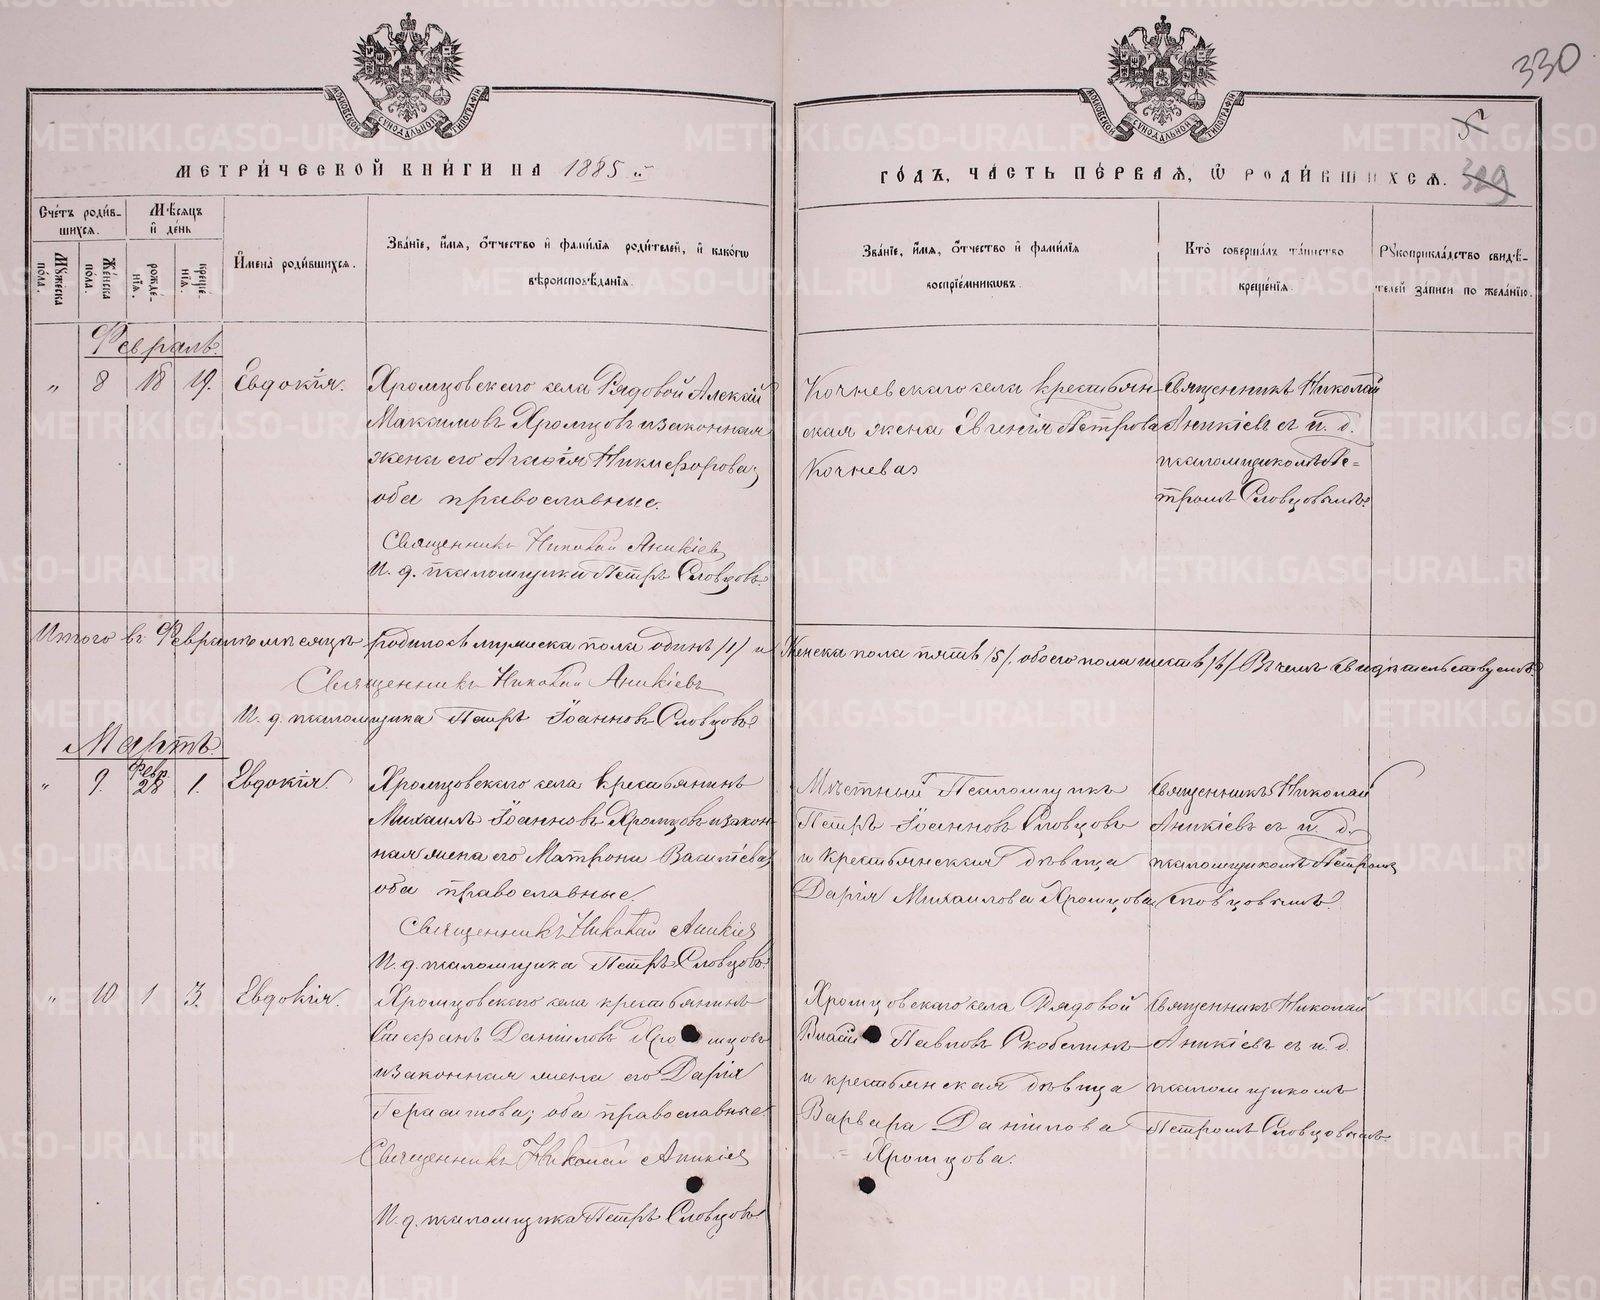 330
МОСКОВСКОЙ СУНОДАЛЬНОЙ ТИПОГРАФІИ
МОСКОВСКОЙ СУНОДАЛЬНОЙ ТИПОГРАФІИ
МЕТРИ́ЧЕСКОЙ КНИ́ГИ НА 1885 й
ГО́ДЪ, ЧА́СТЬ ПЕ́РВАЯ, Ѿ РОДИ́ВШИХСЯ. 329
Сче́тъ роди́в-
шихся.
Мꙋ́жеска по́ла.
Же́нска по́ла.
Мѣ́сяцъ
и҆ де́нь
рожде́нїя.
креще́нїя.
И҆мена̀ роди́вшихся.
Зва́нїе, и҆́мя, ѻ҆́тчество и҆ фами́лїя роди́телей, и҆ како́гѡ
вѣроисповѣ́данїя.
Зва́нїе, и҆́мя, ѻ҆́тчество и҆ фами́лїя
воспрїе́мникѡвъ.
Кто̀ соверша́лъ та́инство
креще́нїя.
Рꙋкоприкла́дство свидѣ́-
телей за́писи по жела́нїю.
Февраль.
" 8 18 19. Евдокія.
Хромцовскаго села Рядовой Алексій
Максимовъ Хромцовъ и законная
жена его Агаѳія Никифорова;
оба православные.
Священникъ Николай Аникіев
И. д. псаломщика Петръ Словцовъ.
Кочневскаго села крестьян-
ская жена Евгенія Петрова
Кочнева
Священникъ Николай
Аникіевъ съ и. д.
псаломщикомъ Пе=
тромъ Словцовымъ.
Итого въ Февралѣ мѣсяцѣ родилось мужеска пола одинъ /1/ и Женска пола пять /5/. обоего пола шесть /6/ Въ чемъ свидѣтельствуемъ.
Священникъ Николай Аникіевъ
И. д. псаломщика Петръ Іоанновъ Словцовъ
Мартъ.
" 9. Февр. 28 1. Евдокія.
Хромцовскаго села крестьянинъ
Михаилъ Іоанновъ Хромцовъ и закон-
ная жена его Матрона Васильева,
оба православные.
Священникъ Николай Аникіев
И. д. псаломщика Петръ Словцовъ.
Мѣстный Псаломщикъ
Петръ Іоанновъ Словцовъ
и крестьянская дѣвица
Дарія Михаилова Хромцова
Священникъ Николай
Аникіевъ съ и. д.
псаломщикомъ Петромъ
Словцовымъ.
" 10 1 3. Евдокія.
Хромцовскаго села крестьянинъ
Стефанъ Даніиловъ Хромцовъ
и законная жена его Дарія
Герасимова; оба православные
Священникъ Николай Аникіев
И. д. псаломщика Петръ Словцовъ
Хромцовскаго села Рядовой
Павловъ Скобелинъ
и крестьянская дѣвица
Варвара Даніилова
= Хромцова.
Священникъ Николай
Аникіевъ съ и. д.
псаломщикомъ
Петромъ Словцовымъ
METRIKI.GASO-URAL.RU